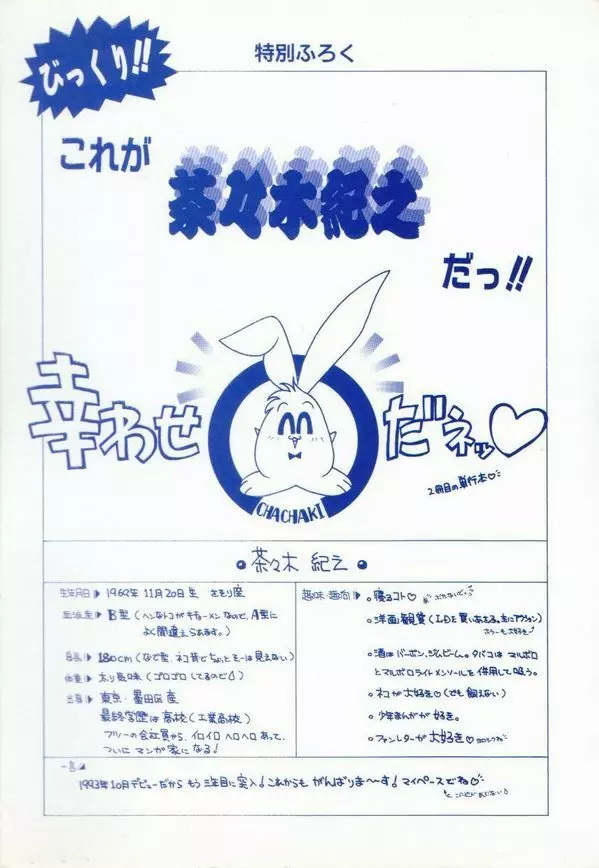 びっくり!!
特別ふろく
これが
茶々木紀之
だっ!!
幸わせ
だネッ♡
CHACHAKI
2冊目の単行本♡
茶々木 紀之
生年月日▶ 1969年 11月20日生 さそり座
血液型▶ B型(ヘンなトコがキチョーメンなので、A型に
よく間違えられます。)
身長▶ 180cm(なで型、ネコ背でちょっとそーは見えない)
体重▶ 太り気味(ゴロゴロしてるので)
出身▶ 東京・墨田区産
最終学歴は高校(工業高校)
フツーの会社員から、イロイロヘロヘロあって、
ついにマンガ家になる!
趣味・趣向▶ 。寝るコト♡
。洋画観賞(LDを買いあさる。主にアクション)
ホラーも大好き
。酒はバーボン、ジムビーム。タバコは マルボロ
とマルボロライトメンソールを併用して吸う。
。ネコが大好き♡(でも飼えない)
。少年まんがが、好き。
。ファンレターが大好き♡
一言
1993年10月デビューだからもう三年目に突入!これからもがんばりま〜す!マイペースでね♡